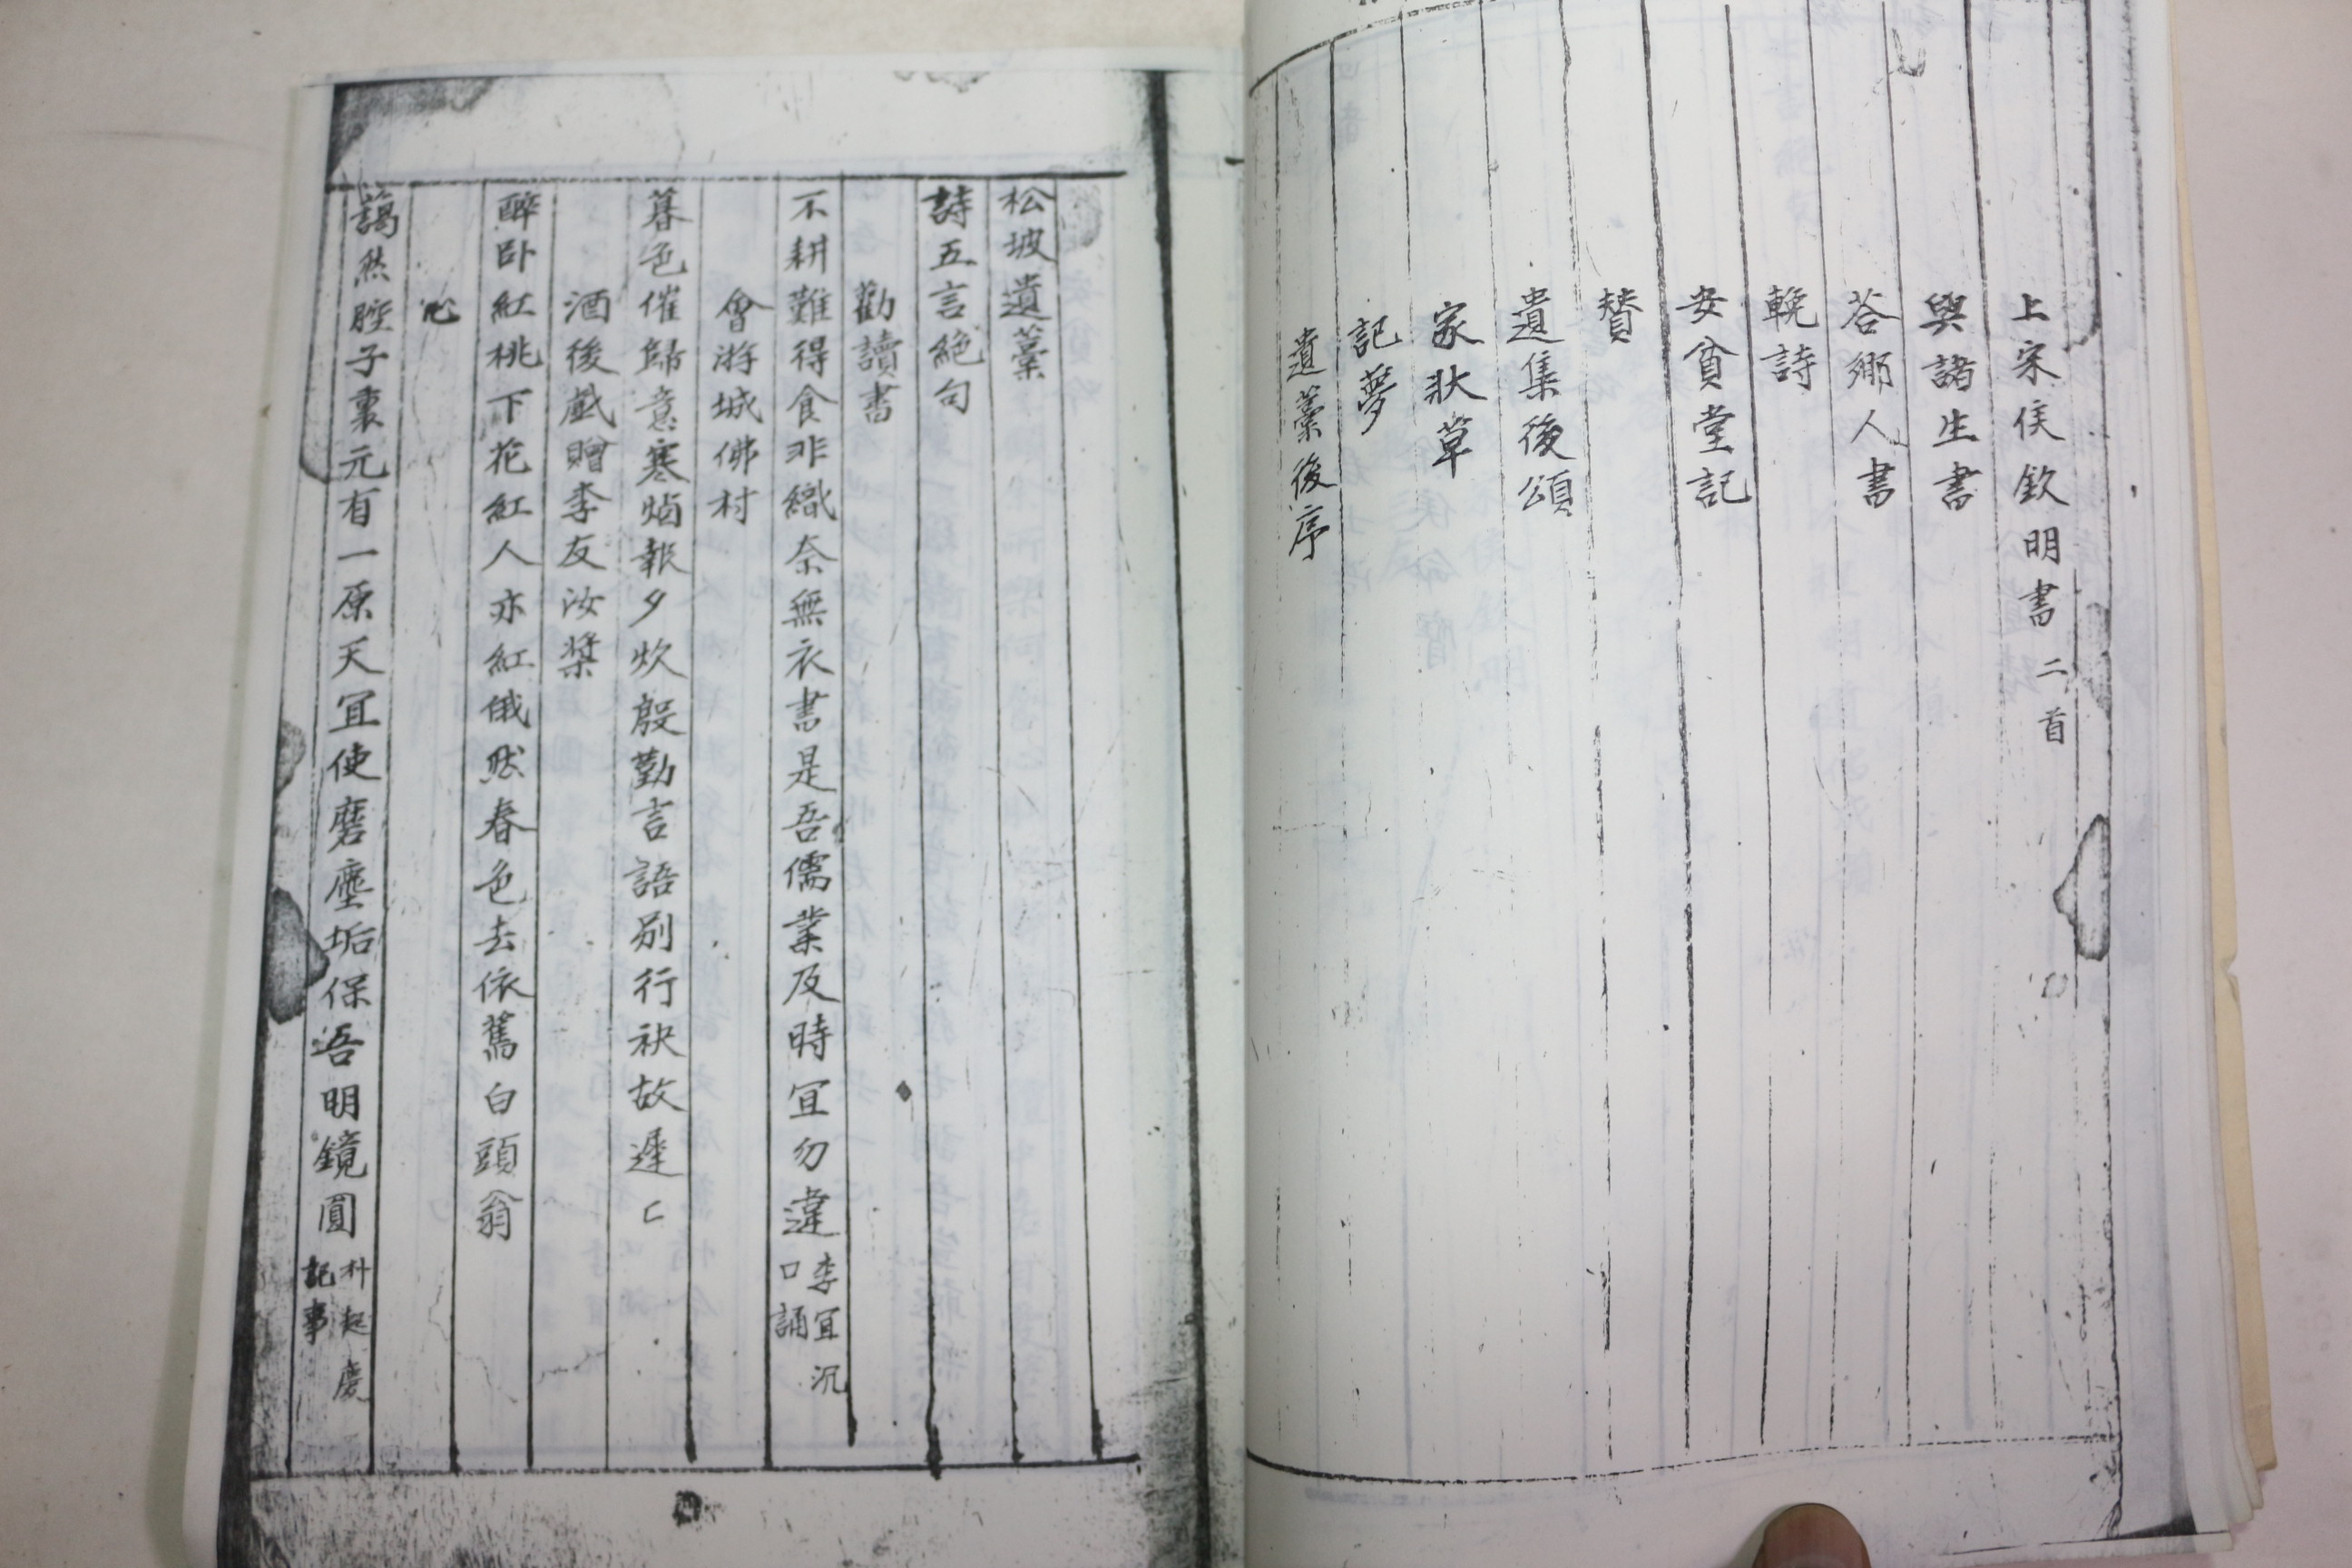 上宋侯欽明書 二首
與諸生書
答鄉人書
輓詩
安貧堂記
贊
遺集後頌
家狀草
記夢
遺藁後序
松坡遺藁
詩五言絕句
勸讀書
不耕難得食非織奈無衣書是吾儒業及時宜勿違 李宜沉口誦
會游城佛村
暮色催歸意寒烟報夕炊殷勤言語別行袂故遲〻
酒後戱贈李友汝槳
醉卧紅桃下花紅人亦紅俄然春色去依舊白頭翁
心
藹然腔子裏元有一原天宜使磨塵垢保吾明鏡圓 朴起慶記事